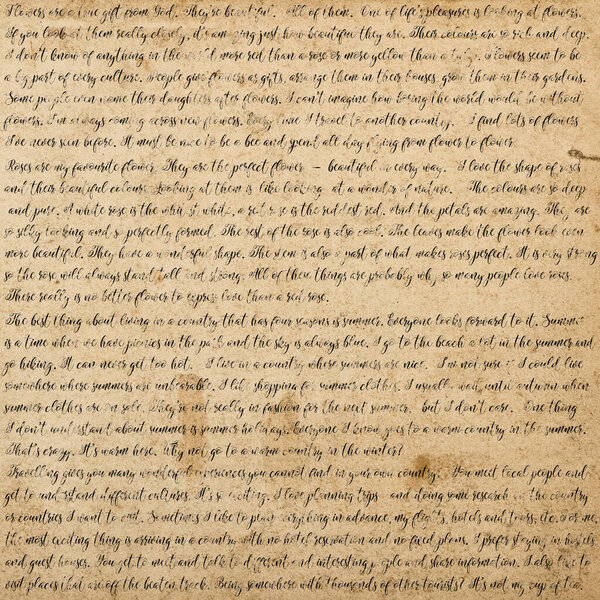 Flowers are a true gift from God. They're beautiful. All of them. One of life's pleasures is looking at flowers.
If you look at them really closely, it's amazing just how beautiful they are. Their colours are so rich and deep.
I don't know of anything in the world more red than a rose or more yellow than a tulip. Flowers seem to be
a big part of every culture. People give flowers as gifts, arrange them in their houses, grow them in their gardens.
Some people even name their daughters after flowers. I can't imagine how boring the world would be without
flowers. I'm always coming across new flowers. Every time I travel to another country, I find lots of flowers
I've never seen before. It must be nice to be a bee and spend all day flying from flower to flower.
Roses are my favourite flower. They are the perfect flower – beautiful in every way. I love the shape of roses
and their beautiful colours. Looking at them is like looking at a wonder of nature. The colours are so deep
and pure. A white rose is the whitest white, a red rose is the reddest red. And the petals are amazing. They are
so silky looking and so perfectly formed. The rest of the rose is also cool. The leaves make the flower look even
more beautiful. They have a wonderful shape. The stem is also a part of what makes roses perfect. It is very strong
so the rose will always stand tall and strong. All of these things are probably why so many people love roses.
There really is no better flower to express love than a red rose.
The best thing about living in a country that has four seasons is summer. Everyone looks forward to it. Summer
is a time when we have picnics in the park and the sky is always blue. I go to the beach a lot in the summer and
go hiking. It can never get too hot. I live in a country where summers are nice. I'm not sure if I could live
somewhere where summers are unbearable. I like shopping for summer clothes. I usually wait until autumn when
summer clothes are on sale. They're not really in fashion for the next summer, but I don't care. One thing
I don't understand about summer is summer holidays. Everyone I know goes to a warm country in the summer.
That's crazy. It's warm here. Why not go to a warm country in the winter?
Travelling gives you many wonderful experiences you cannot find in your own country. You meet local people and
get to understand different cultures. It's so exciting. I love planning trips and doing some research on the country
or countries I want to visit. Sometimes I like to plan everything in advance, my flights, hotels and tours, etc. For me,
the most exciting thing is arriving in a country with no hotel reservation and no fixed plans. I prefer staying in hostels
and guest houses. You get to meet and talk to different and interesting people and share information. I also like to
visit places that are off the beaten track. Being somewhere with thousands of other tourists? It's not my cup of tea.